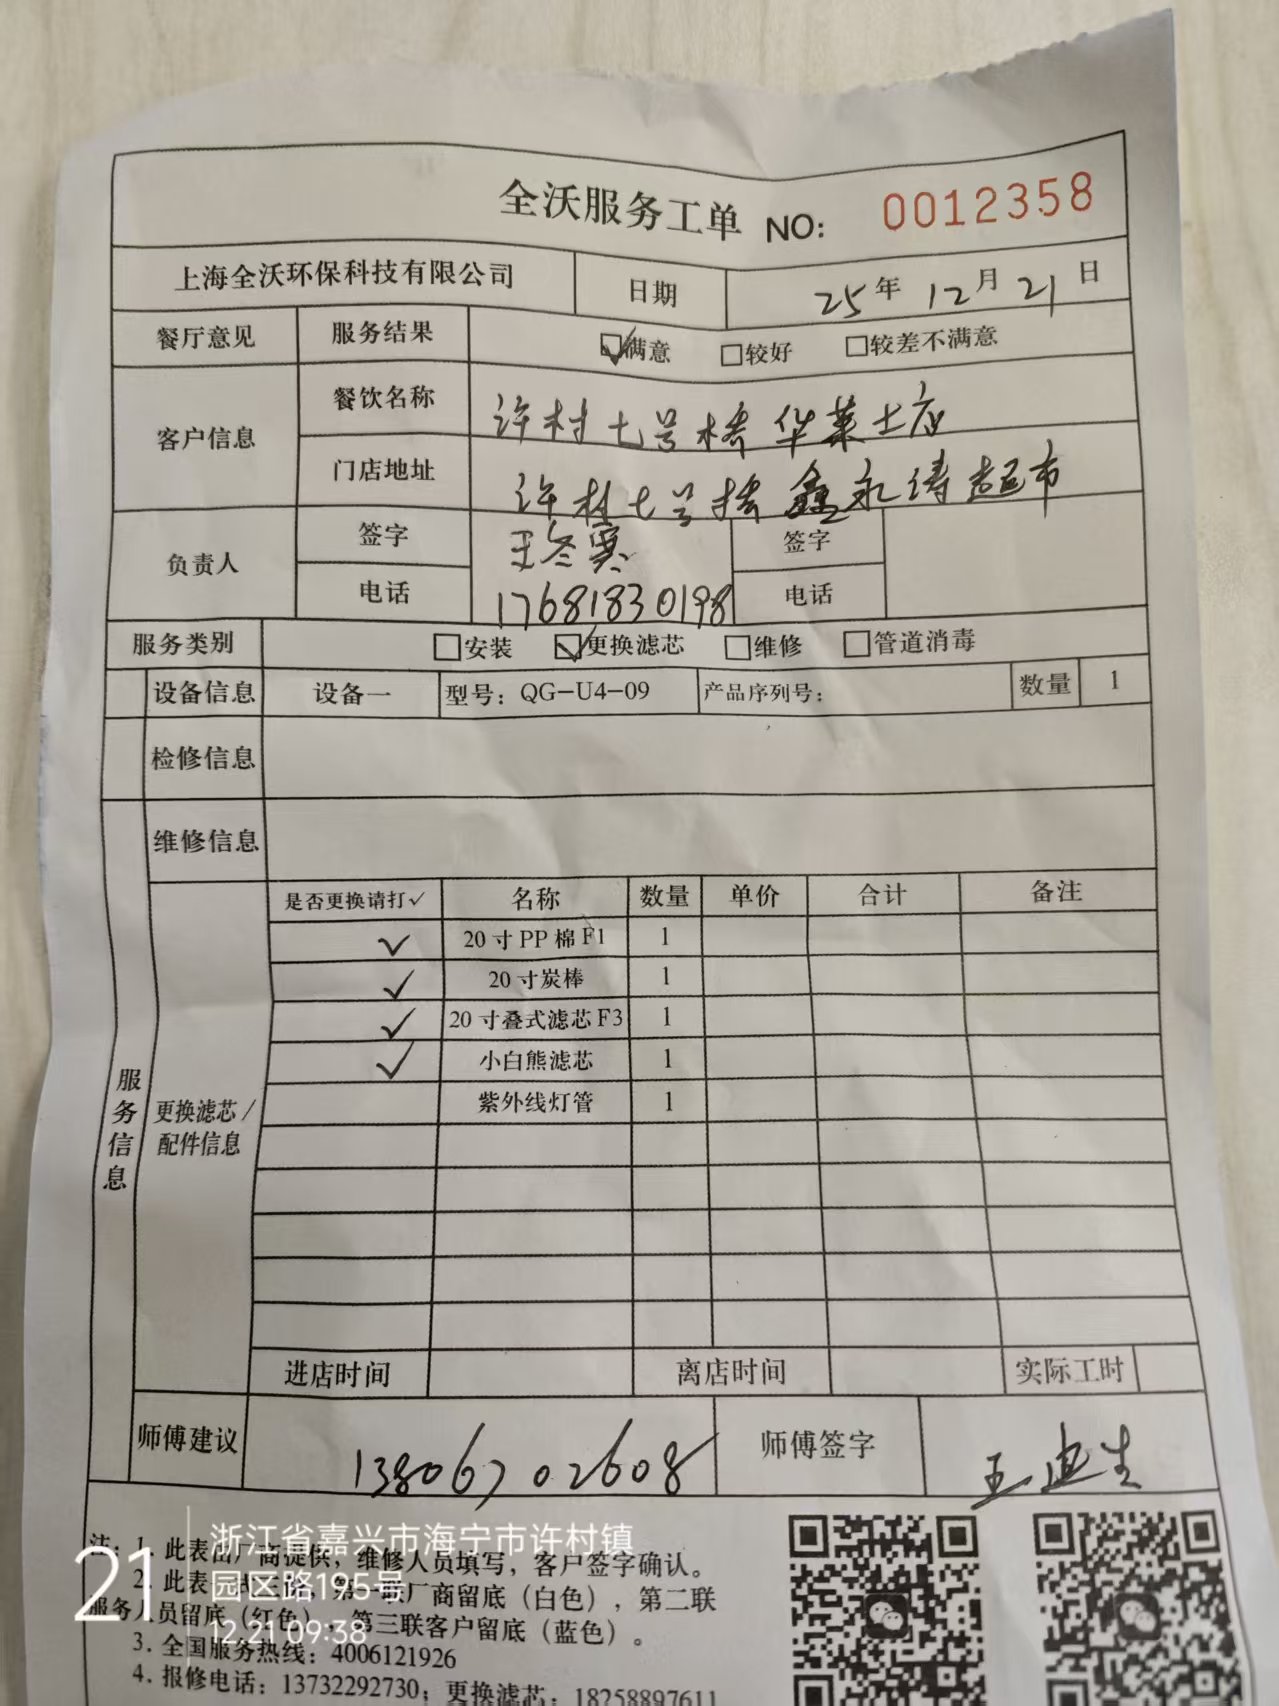 全沃服务工单 NO: 0012358
上海全沃环保科技有限公司 日期 25年12月21日
餐厅意见 服务结果 ☑满意 □较好 □较差不满意
客户信息 餐饮名称 许村七号桥华莱士店
门店地址 许村七号桥鑫永涛超市
负责人 签字 王冬寒 签字
电话 17681830198 电话
服务类别 □安装 ☑更换滤芯 □维修 □管道消毒
设备信息 设备一 型号：QG-U4-09 产品序列号： 数量 1
检修信息
维修信息
服务信息
更换滤芯/
配件信息
是否更换请打✓ 名称 数量 单价 合计 备注
✓ 20寸PP棉F1 1
✓ 20寸炭棒 1
✓ 20寸叠式滤芯F3 1
✓ 小白熊滤芯 1
紫外线灯管 1
进店时间 离店时间 实际工时
师傅建议 13806702608 师傅签字 王
注：1. 此表由厂商提供，维修人员填写，客户签字确认。
2. 此表 第一联厂商留底（白色），第二联
服务人员留底（红色），第三联客户留底（蓝色）。
3. 全国服务热线：4006121926
4. 报修电话：13732292730；更换滤芯：18258897611
21
浙江省嘉兴市海宁市许村镇
园区路195号
12.21 09:38